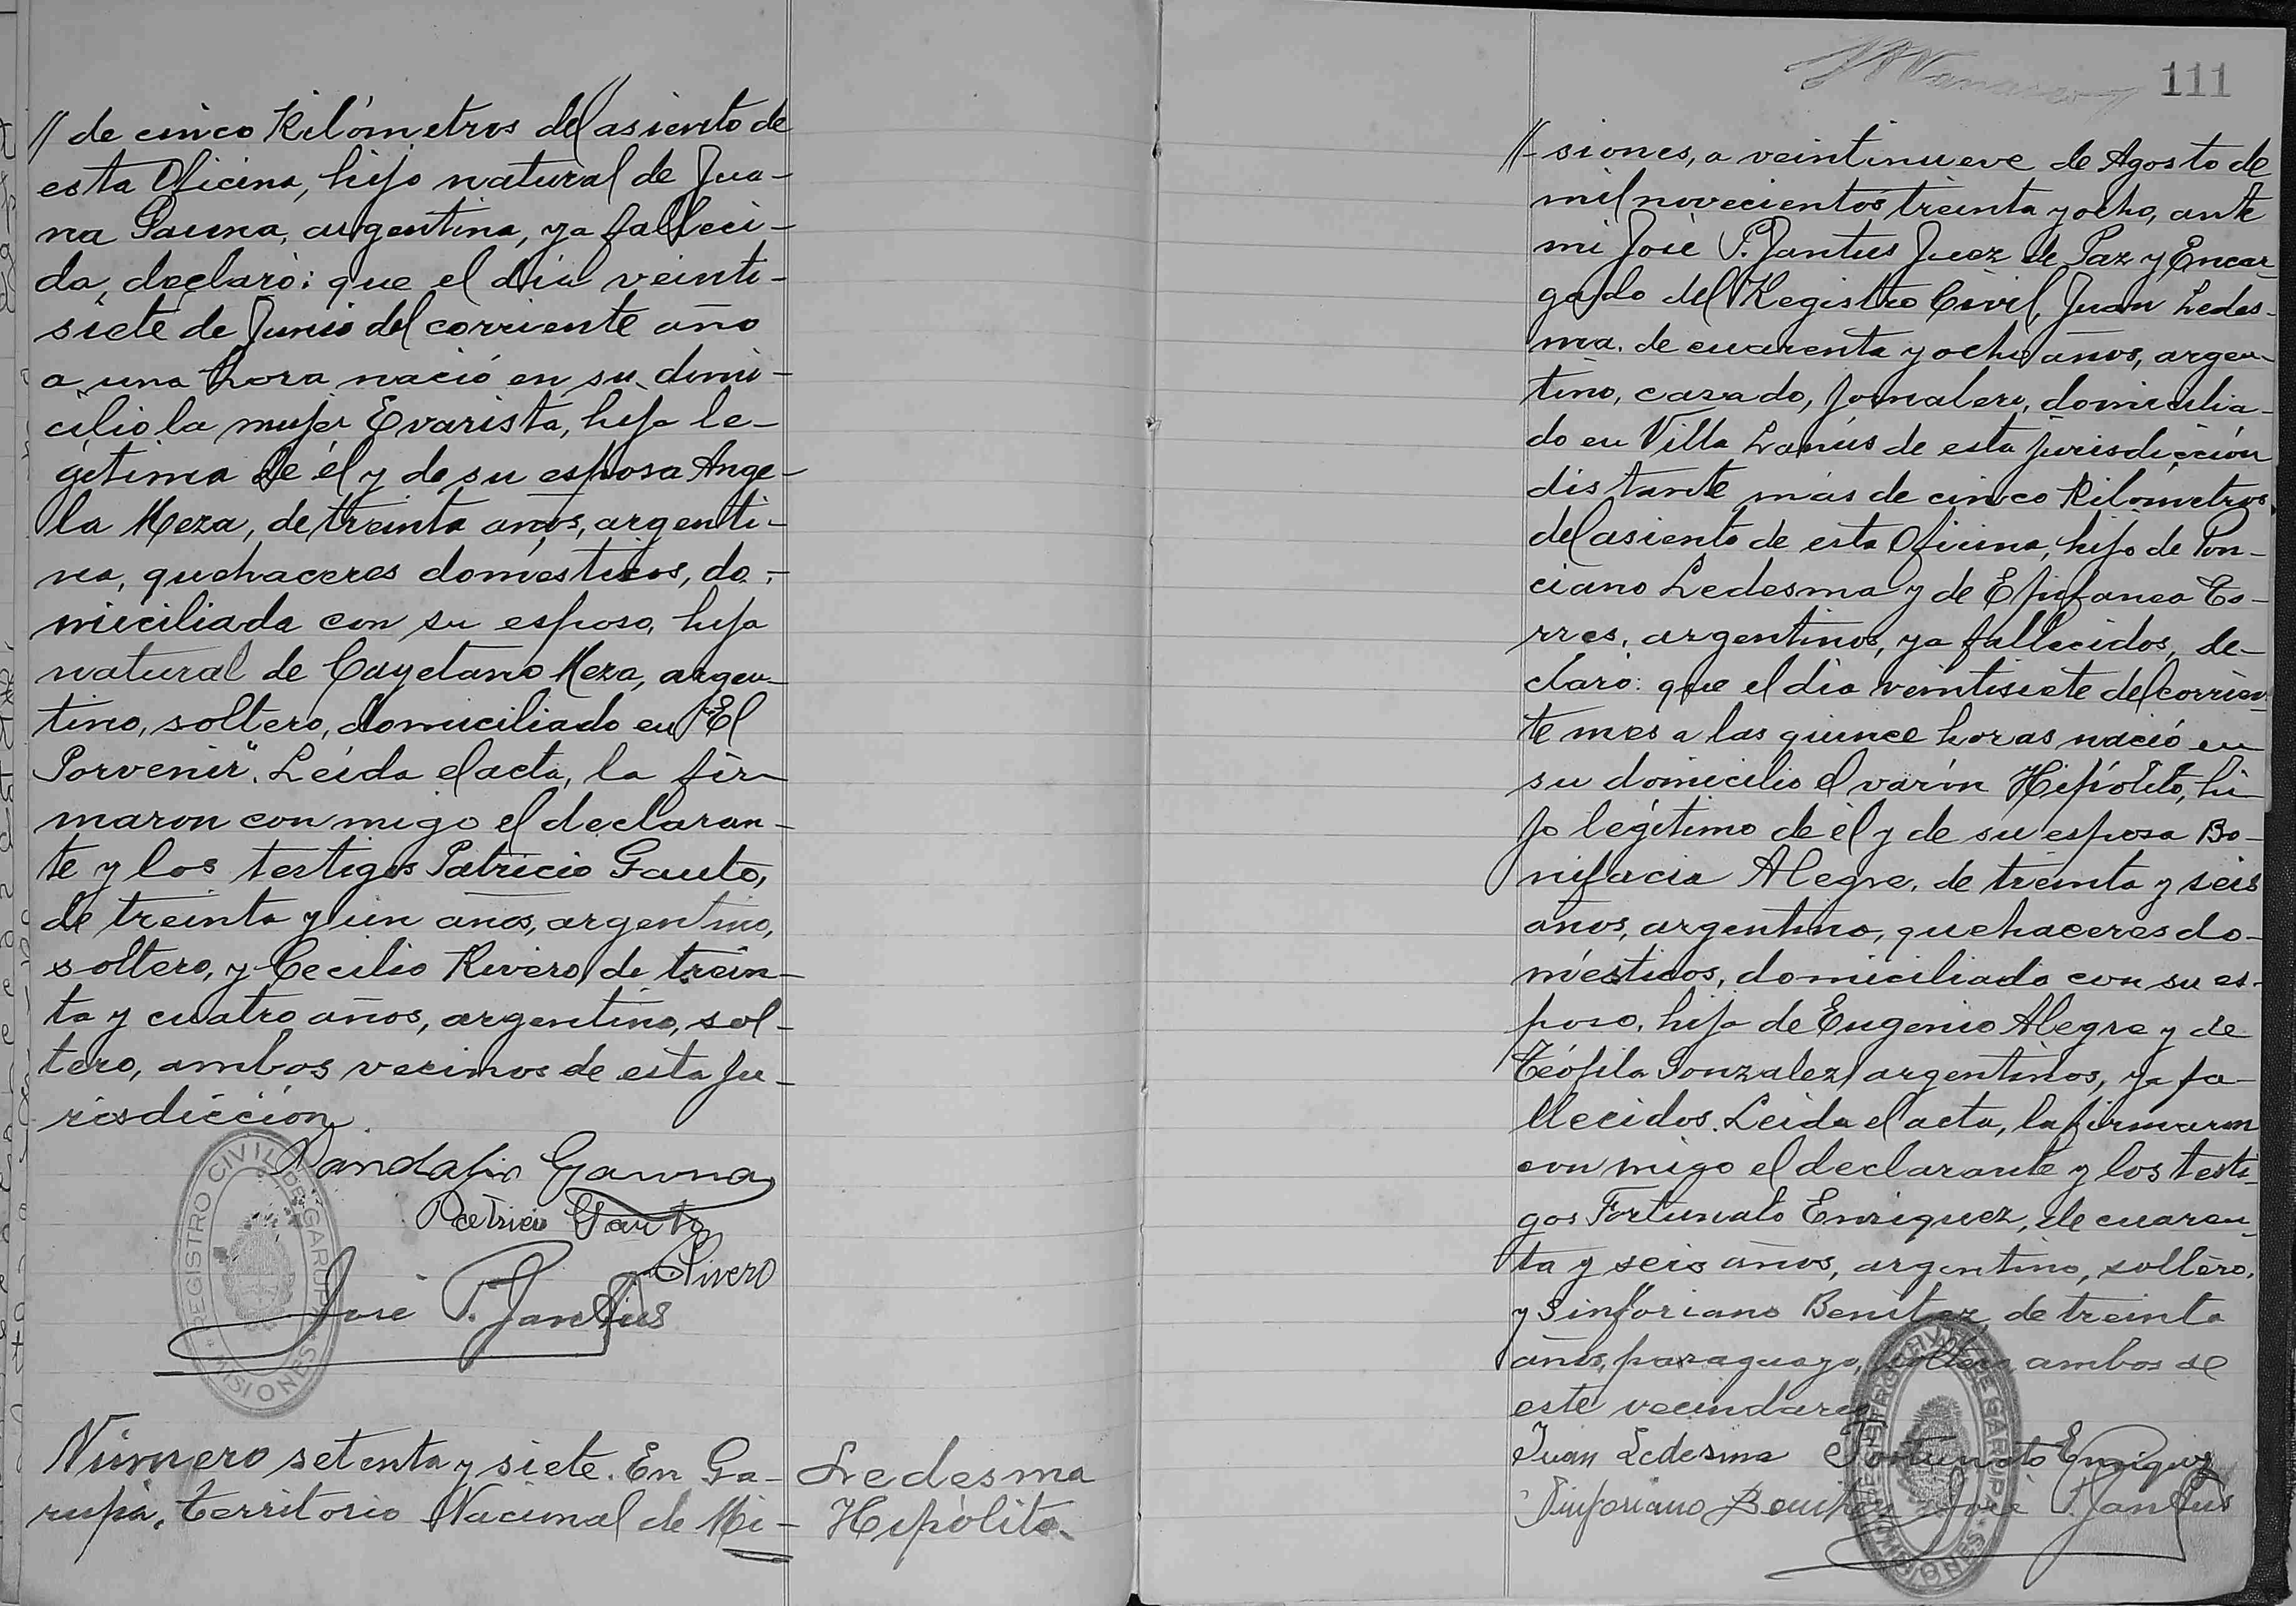 // de cinco Kilómetros del asiento de
esta Oficina, hijo natural de Jua-
na Gauna, argentina, ya falleci-
da, declaró: que el día veinti-
siete de Junio del corriente año
a una hora nació en su domi-
cilio la mujer Evarista, hija le-
gítima de él y de su esposa Ange-
la Meza, de treinta años, argenti-
na, quehaceres domésticos, do-
miciliada con su esposo, hija
natural de Cayetano Meza, argen-
tino, soltero, domiciliado en "El
Porvenir". Leída el acta, la fir-
maron con migo el declaran-
te y los testigos Patricio Gauto,
de treinta y un años, argentino,
soltero, y Cecilio Rivero, de trein-
ta y cuatro años, argentino, sol-
tero, ambos vecinos de esta ju-
risdicción.
Gauna
Patricio Gauto
Rivero
José P. Jantus
REGISTRO CIVIL DE GARUPA
MISIONES
Número setenta y siete. En Ga-
rupá, Territorio Nacional de Mi-
Ledesma
Hipólito
111
//- siones, a veintinueve de Agosto de
mil novecientos treinta y ocho, ante
mi José P. Jantus Juez de Paz y Encar-
gado del Registro Civil, Juan Ledes-
ma, de cuarenta y ocho años, argen-
tino, casado, jornalero, domicilia-
do en Villa Lanús de esta jurisdicción
distante más de cinco Kilómetros
del asiento de esta Oficina, hijo de Pon-
ciano Ledesma y de Epifanea To-
rres, argentinos, ya fallecidos, de-
claró: que el día veintisiete del corrien-
te mes a las quince horas nació en
su domicilio el varón Hipólito, hi-
jo legítimo de él y de su esposa Bo-
nifacia Alegre, de treinta y seis
años, argentina, quehaceres do-
mésticos, domiciliada con su es-
poso, hija de Eugenio Alegre y de
Teófila Gonzalez, argentinos, ya fa-
llecidos. Leída el acta, la firmaron
con migo el declarante y los testi-
gos Fortunato Enriquez, de cuaren-
ta y seis años, argentino, soltero,
y Sinforiano Benitez, de treinta
años, paraguayo, soltero, ambos de
este vecindario.
Juan Ledesma Fortunato Enriquez
Sinforiano Benitez José P. Jantus
REGISTRO CIVIL DE GARUPA
MISIONES